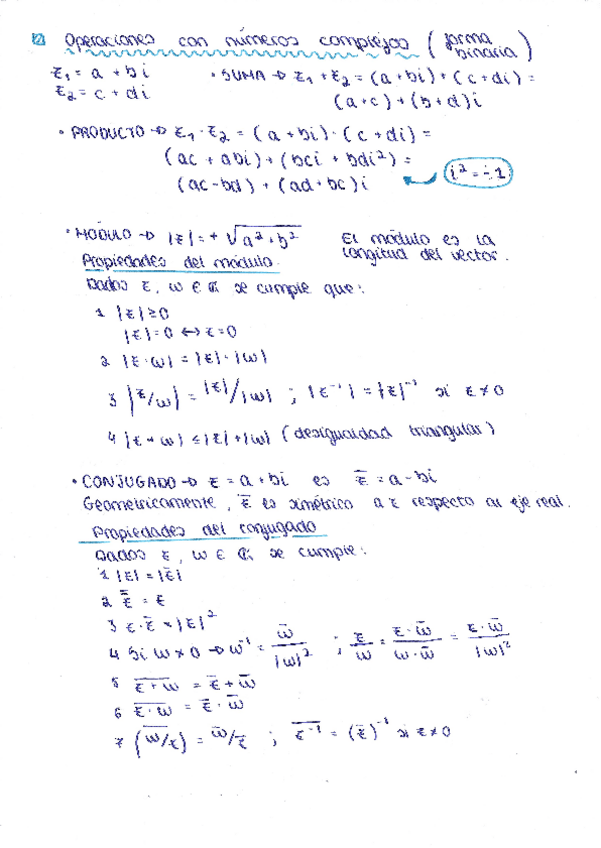 2 Operaciones con números complejos (forma binaria)
z₁ = a + bi
z₂ = c + di
• SUMA → z₁ + z₂ = (a + bi) + (c + di) =
(a+c) + (b+d)i
• PRODUCTO → z₁ · z₂ = (a + bi) · (c + di) =
(ac + abi) + (bci + bdi²) =
(ac - bd) + (ad + bc)i
i² = -1
• MÓDULO → |z| = + √a² + b²
El módulo es la
longitud del vector.
Propiedades del módulo.
Dados z, w ∈ ℂ se cumple que:
1 |z| ≥ 0
|z| = 0 ↔ z = 0
2 |z · w| = |z| · |w|
3 |z/w| = |z|/|w| ; |z⁻¹| = |z|⁻¹ si z ≠ 0
4 |z + w| ≤ |z| + |w| (desigualdad triangular)
• CONJUGADO → z = a + bi es z̄ = a - bi
Geometricamente, z̄ es simétrico a z respecto al eje real.
Propiedades del conjugado
Dados z, w ∈ ℂ se cumple:
1 |z| = |z̄|
2 z̿ = z
3 z · z̄ = |z|²
4 Si w ≠ 0 → w⁻¹ = w̄/|w|² ; z/w = z · w̄/w · w̄ = z · w̄/|w|²
5 \overline{z + w} = z̄ + w̄
6 \overline{z · w} = z̄ · w̄
7 (\overline{w/z}) = w̄/z̄ ; \overline{z⁻¹} = (z̄)⁻¹ si z ≠ 0